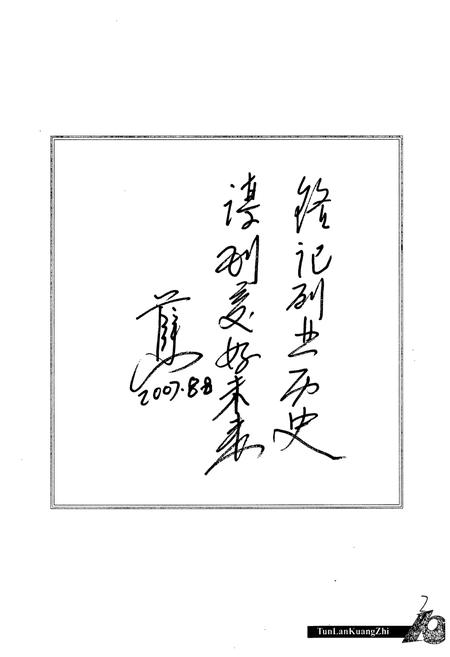 铭记创业历史
谱创美好未来
2007.8.8
TunLanKuangZhi